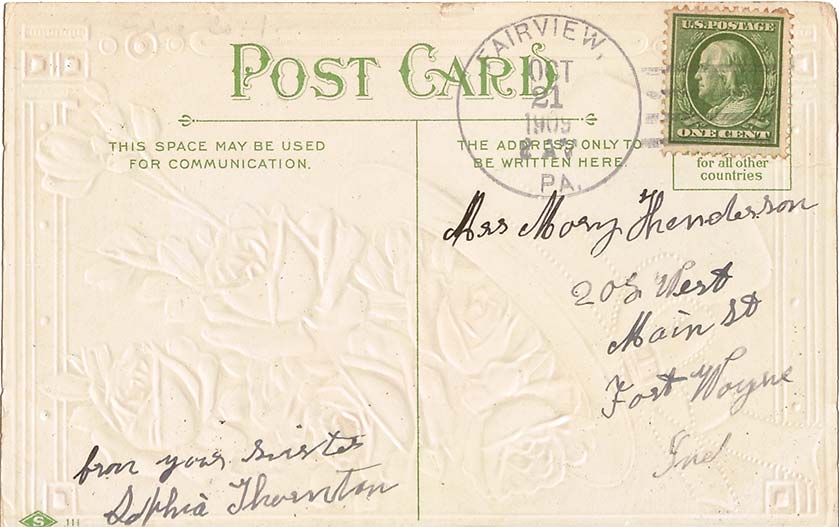 POST CARD
THIS SPACE MAY BE USED
FOR COMMUNICATION.
THE ADDRESS ONLY TO
BE WRITTEN HERE.
FAIRVIEW,
OCT
21
1909
PA.
U.S. POSTAGE
ONE CENT
for all other
countries
Mrs Mary Henderson
West
Main St
Fort Wayne
Ind
from your sister
Sophia Thornton
S 111